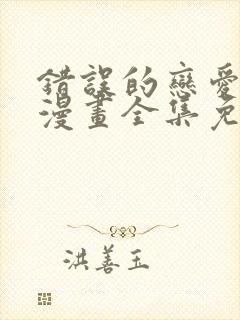 錯誤的戀愛
漫畫全集免
洪善玉